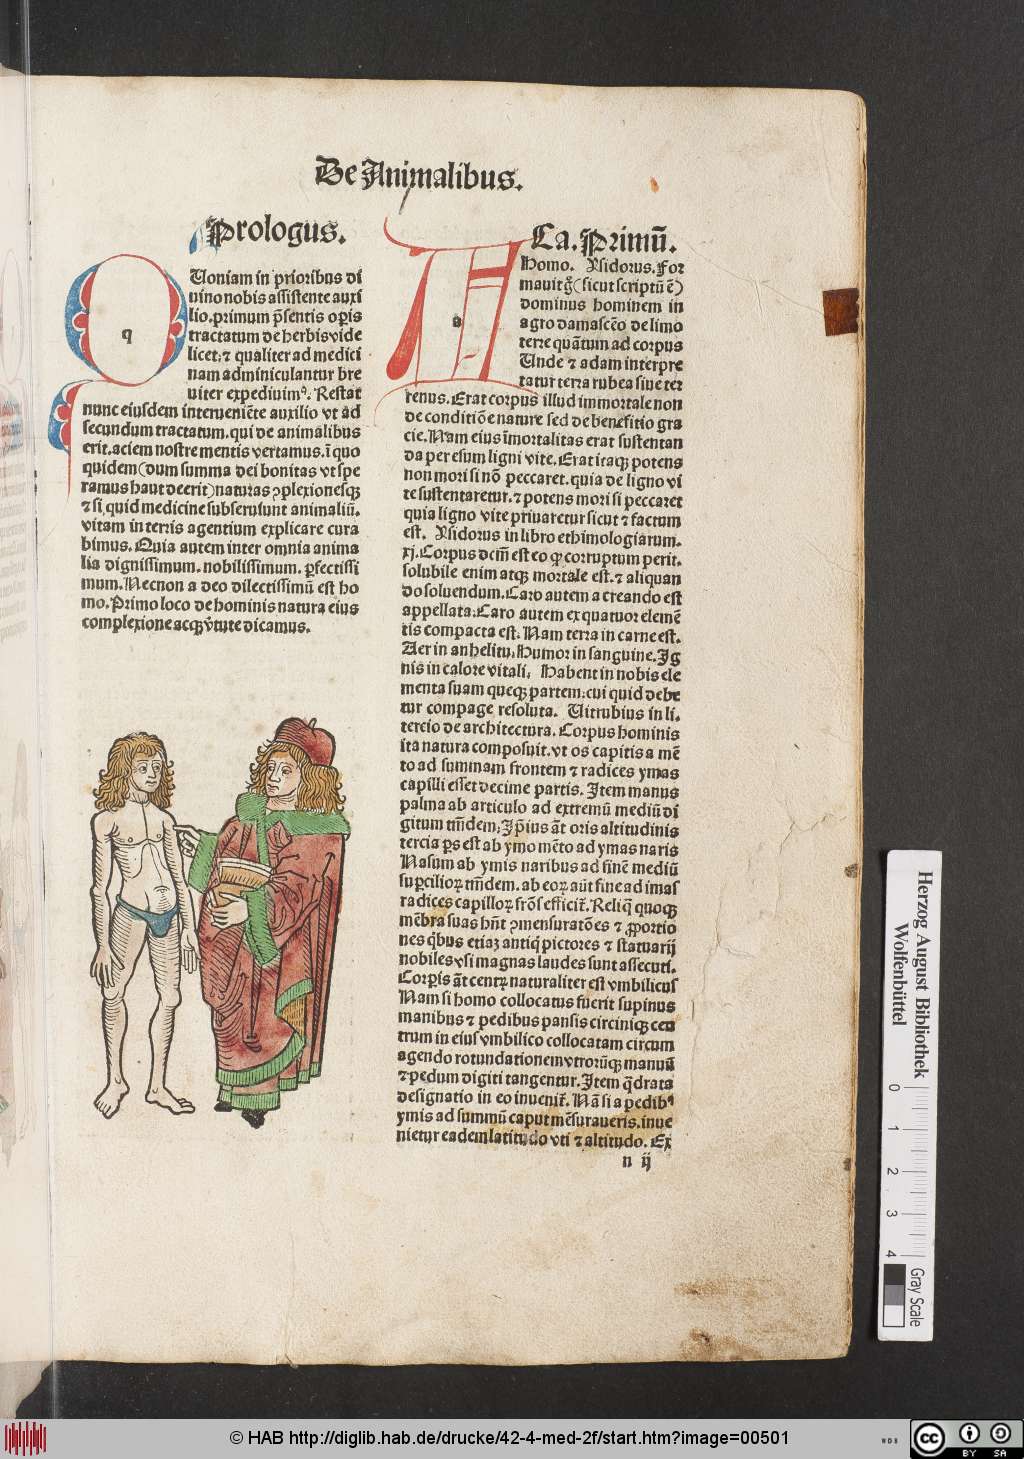 De Animalibus.
Prologus.
q
Uoniam in prioribus di
uino nobis assistente auxi
lio. primum p̄sentis operis
tractatum de herbis vide
licet. ⁊ qualiter ad medici
nam adminiculantur bre
uiter expediuimꝰ. Restat
nunc eiusdem interueniēte auxilio vt ad
secundum tractatum. qui de animalibus
erit. aciem nostre mentis vertamus. ī quo
quidem (dum summa dei bonitas vt spe
ramus haut deerit) naturas ꝯplexionesqꝫ
⁊ si quid medicine subseruiunt animaliū.
vitam in terris agentium explicare cura
bimus. Quia autem inter omnia anima
lia dignissimum. nobilissimum. perfectissi
mum. Necnon a deo dilectissimū est ho
mo. Primo loco de hominis natura eius
complexione acqꝫ v̄tute dicamus.
Ca. Primū.
Homo. Ysidorus. For
mauit g̊ (sicut scriptū ē)
dominus hominem in
agro damascēo de limo
terre quātum ad corpus
Unde ⁊ adam interpre
tatur terra rubea siue ter
renus. Erat corpus illud immortale non
de conditiōe nature sed de benefitio gra
cie. Nam eius īmortalitas erat sustentan
da per esum ligni vite. Erat itaqꝫ potens
non mori si nō peccaret. quia de ligno vi
te sustentaretur. ⁊ potens mori si peccaret
quia ligno vite priuaretur sicut ⁊ factum
est. Ysidorus in libro ethimologiarum.
xj. Corpus dcm̄ est eo ꝙ corruptum perit.
solubile enim atqꝫ mortale est. ⁊ aliquan
do soluendum. Caro autem a creando est
appellata. Caro autem ex quatuor elemē
tis compacta est. Nam terra in carne est.
Aer in anhelitu. Humor in sanguine. Ig
nis in calore vitali. Habent in nobis ele
menta suam queqꝫ partem. cui quid debe
tur compage resoluta. Uitrubius in li.
tercio de architectura. Corpus hominis
ita natura composuit. vt os capitis a mē
to ad summam frontem ⁊ radices ymas
capilli esset decime partis. Item manus
palma ab articulo ad extremū mediū di
gitum tm̄dem. Ip̄ius āt oris altitudinis
tercia pars est ab ymo mēto ad ymas naris
Nasum ab ymis naribus ad finē mediū
supercilioꝝ tm̄dem. ab eoꝝ aūt fine ad imas
radices capilloꝝ frōs efficit̄. Reliq̄ quoqꝫ
mēbra suas hn̄t ꝯmensuratōes ⁊ proportio
nes q̇bus etiaꝫ antiq̇ pictores ⁊ statuarij
nobiles vsi magnas laudes sunt assecuti.
Corꝑis āt centꝝ naturaliter est vmbilicus
Nam si homo collocatus fuerit supinus
manibus ⁊ pedibus pansis circiniqꝫ cen
trum in eius vmbilico collocatam circum
agendo rotundationem vtrorūqꝫ manuū
⁊ pedum digiti tangentur. Item q̄drata
designatio in eo inuenit̄. Nā si a pedibꝰ
ymis ad summū caput mēsuraueris. inue
nietur eadem latitudo vti ⁊ altitudo. Ex
n ij
Herzog August Bibliothek
Wolfenbüttel
0 1 2 3 4
Gray Scale
© HAB http://diglib.hab.de/drucke/42-4-med-2f/start.htm?image=00501
WDB
cc BY SA